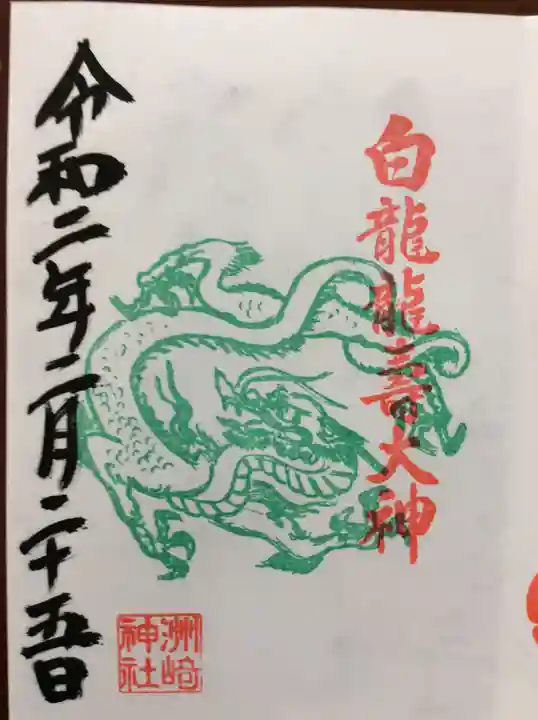 白龍龍壽大神
令和二年二月二十五日
洲崎
神社